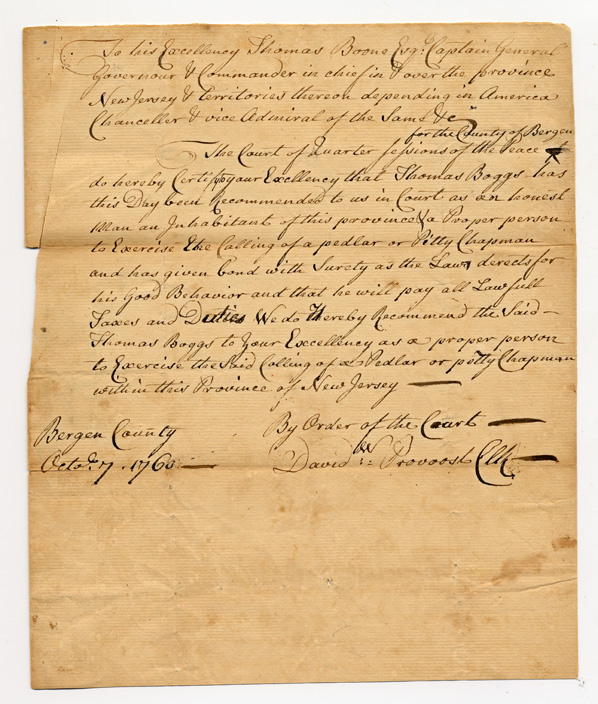 To his Excellency Thomas Boone Esqr. Captain General
Governour & Commander in chief in & over the province
New Jersey & Territories thereon depending in America
Chanceller & vice Admiral of the Same &c
for the County of Bergen
The Court of Quarter sessions of the Peace
do hereby Certify to your Excellency that Thomas Boggs has
this Day been Recommended to us in Court as an honest
Man an Inhabitant of this province & a Proper person
to Exercise the Calling of a pedlar or Pitty Chapman
and has given bond with Surety as the Law derects for
his Good Behavior and that he will pay all Lawfull
Taxes and Duties We do thereby Recommend the Said —
Thomas Boggs to Your Excellency as a proper person
to Exercise the Said Calling of a Pedlar or petty Chapman
within this Province of New Jersey —
By Order of the Court —
Bergen County
David Wm: Provoost Clk —
Octor. 7. 1760 —